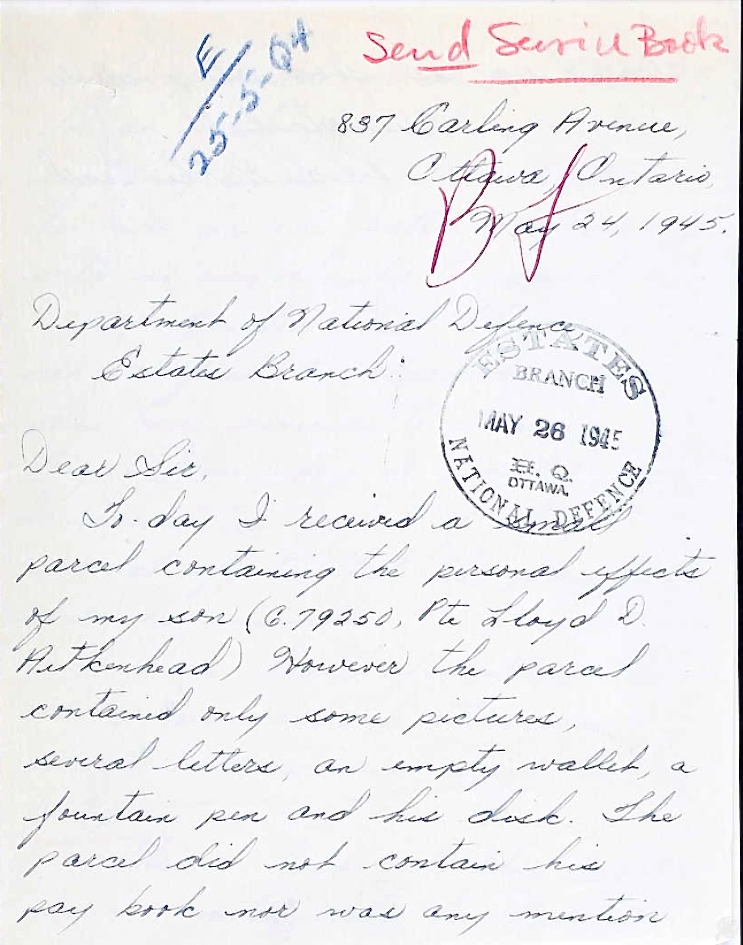 E
25-5-04
Send Service Book
837 Carling Avenue,
Ottawa, Ontario,
May 24, 1945.
Department of National Defence
Estates Branch:
ESTATES
BRANCH
MAY 26 1945
H. Q.
OTTAWA.
NATIONAL DEFENCE
Dear Sir,
To-day I received a small
parcel containing the personal effects
of my son (C.79250, Pte Lloyd D.
Aitkenhead) However the parcel
contained only some pictures,
several letters, an empty wallet, a
fountain pen and his disk. The
parcel did not contain his
pay book nor was any mention